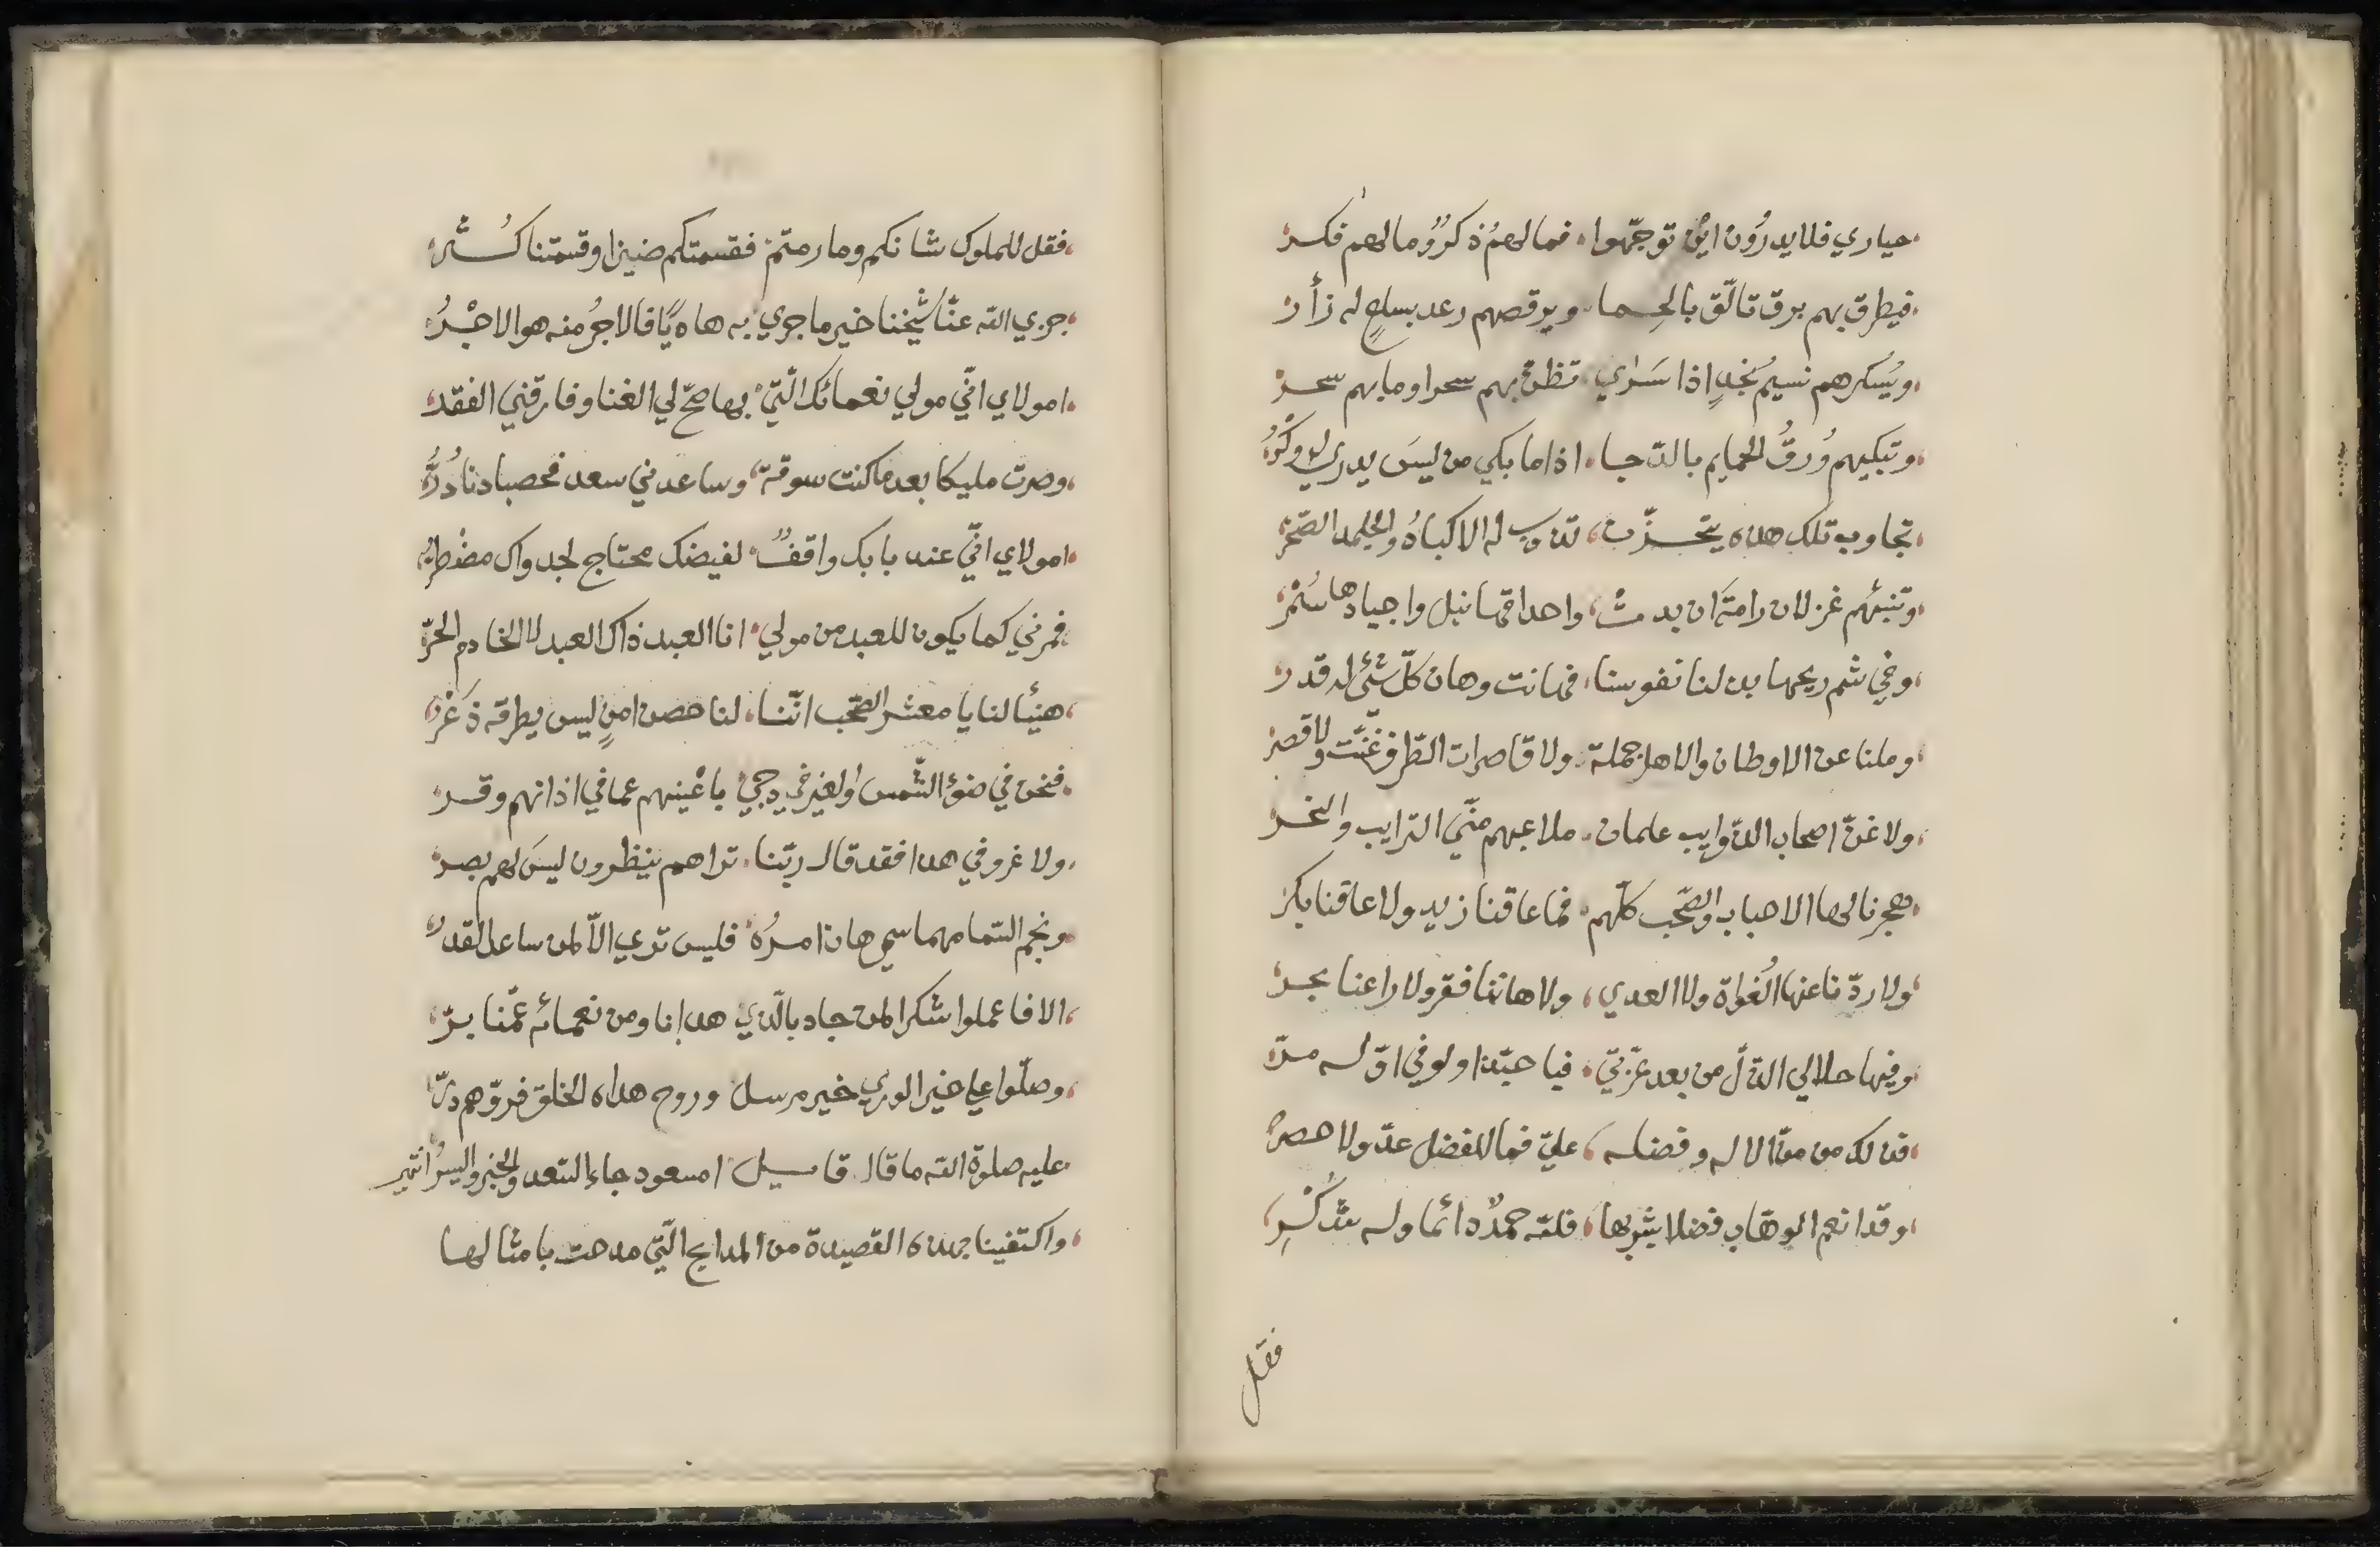 حياري فلا يدرون اين توجّهوا، فما لهم ذكرٌ وما لهم فكر
فيطرق بهم برق تألّق بالحما، ويرقصهم رعد بسلعٍ له زأر
ويُسكرهم نسيمُ نجدٍ اذا سَراي، تظن بهم سحرا وما بهم سحر
وتبكيهم وُرقُ الحمايم بالدّجا، اذا ما بكي من ليسَ يدري له وكرُ
تجاوب تلك هذه بتحزّن، تذوب له الاكبادُ والجلمد الصّخر
وتنبئهم غزلان رامتَ ان بدت، واحداقها نبل واجيادها سُمْر
وفي شم ريحها بذلنا نفوسنا، فهانت وهان كلّ شئ له قدر
وملنا عن الاوطان والاهل جملة، ولا قاصرات الطّرف غنّت ولا قصر
ولا غنّ اصحاب الذّوايب علمان، ملاعبهم منّي الترايب والنحر
هجرنا لها الاحباب والصّحب كلّهم، فما عاقنا زيد ولا عاقنا بكر
ولا ردّنا عنها الغُواة ولا العدي، ولا هاننا فقر ولا راعنا بحر
وفيها حلا لي الذّلّ من بعد عزّتي، فيا حبّذا ولو في اوّله مرّ
فذلك من منّ الاله وفضله، عليّ فما للفضل عدّ ولا حصر
وقد انعم الوهّاب فضلا بشربها، فللّه حمدٌ دائما وله شُكْرِ
فقل
فقل للملوك شانكم وما رمتم، فقسمتكم ضيزا وقسمتنا كُثر
جزي اللّه عنّا شيخنا خير ما جزي، به هاديًا فالاجرُ منه هو الاجْرُ
امولاي انّي مولي نعمائك الّتي، بها صحّ لي الغنا وفارقني الفقد
وصرت مليكا بعد ما كنت سوقة، وساعدني سعد فحصبادنا دُرُّ
امولاي انّي عند بابك واقفٌ، لفيضك محتاج لجدواك مضْطرّ
فمرني كما يكون للعبد من مولي، انا العبد ذاك العبد لا الخادم الحرّ
هنيأ لنا يا معشر الصّحب انّنا، لنا حصن امنٍ ليس يطرقه ذَعْر
فنحن في ضوئ الشّمس والغير في دجي، باعْينهم عما في اذانهم وقر
ولا غرو في هذا فقد قال ربّنا، تراهم ينظرون ليسَ لهم بصر
ونجم السّما مهما سمي هان امرُه، فليس تري الاّ لمن ساعد القدر
الا فاعملوا شكرا لمن جاد بالّذي، هدانا ومن نعمائه عمّنا برّ
وصلّوا علي خير الوري خير مرسل، وروح هداه الخلق فروّهم درّ
عليه صلوة اللّه ما قال قايل، امسعود جاء السّعد والخير واليسرُ انتهي
واكتفينا بهذه القصيدة من المدايح الّتي مدحت بامثالها